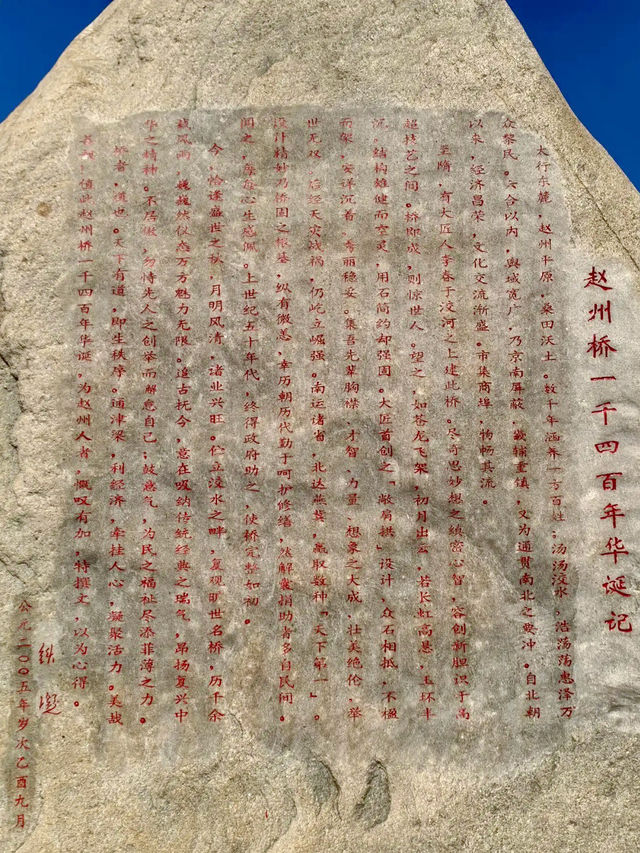 赵州桥一千四百年华诞记
太行东麓，赵州平原，桑田沃土。数千年涵养一方百姓；汤汤洨水，浩荡荡惠泽万
众黎民。六合以内，舆域宽广，乃京南屏蔽，畿辅重镇，又为通贯南北之要冲。自北朝
以来，经济昌荣，文化交流渐盛。市集商埠，物畅其流。
至隋，有大匠人李春于洨河之上建此桥。尽奇思妙想之缜密心智，容创新胆识于高
超技艺之间。桥即成，则惊世人。望之，如苍龙飞架，初月出云，若长虹高悬，玉环半
沉。结构雄健而空灵，用石简约却强固。大匠首创之「敞肩拱」设计，众石相抵，不楹
而架，安详沉着，秀丽稳妥。集吾先辈胸襟、才智、力量、想象之大成，壮美绝伦，举
世无双。虽经天灾战祸，仍屹立崛强。南运诸省，北达燕冀，赢取数种「天下第一」。
设计精妙乃桥固之根基，纵有微恙，幸历朝历代勤于呵护修缮，然解囊捐助者多自民间。
闻之，每每心生感佩。上世纪五十年代，终得政府助之，使桥完整如初。
今，恰逢盛世之秋，月明风清，诸业兴旺。伫立洨水之畔，复观旷世名桥，历千余
载风雨，巍巍然仪态万方魅力无限。追古抚今，意在吸纳传统经典之瑞气，昂扬复兴中
华之精神。不居傲，勿恃先人之创举而懈怠自己；鼓意气，为民之福祉尽添菲薄之力。
桥者，道也。天下有道，即生秩序。通津梁，利经济，牵挂人心，凝聚活力。美哉
善哉，值此赵州桥一千四百年华诞，为赵州人者，慨叹有加，特撰文，以为心得。
铁凝
公元二〇〇五年岁次乙酉九月